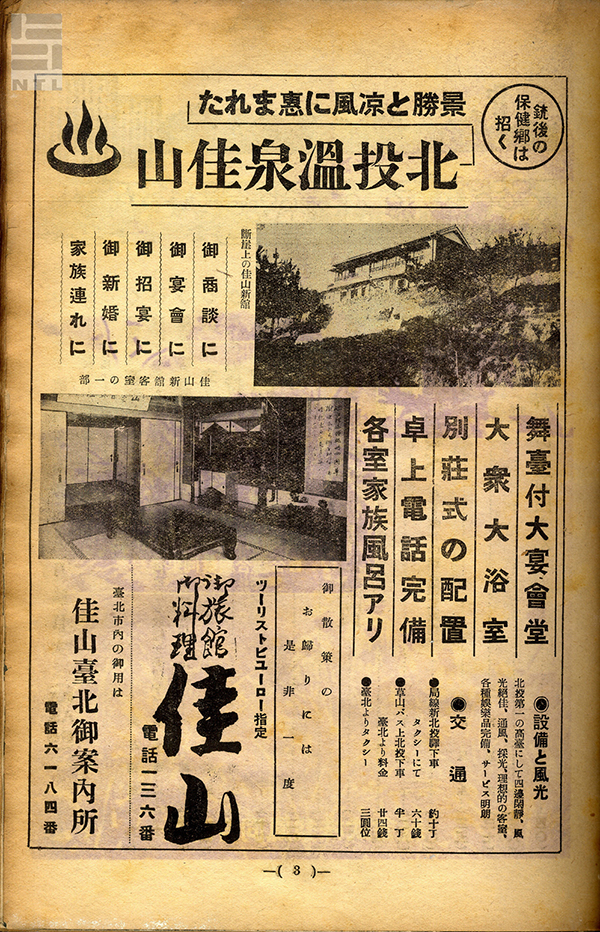 NTL
銃後の
保健鄉は
招く
景勝と凉風に惠まれた
北投溫泉佳山
斷崖上の佳山新館
御商談に
御宴會に
御招宴に
御新婚に
家族連れに
佳山新館客室の一部
舞臺付大宴會堂
大衆大浴室
別莊式の配置
卓上電話完備
各室家族風呂アリ
●設備と風光
北投第一の高臺にして四邊閑靜、風
光絕佳、通風、採光、理想的の客室、
各種娛樂品完備、サービス明朗
●交通
●局線新北投驛下車 約十丁
タクシーにて 六十錢
●草山バス上北投下車 半丁
臺北より料金 廿四錢
●臺北よりタクシー 三圓位
御散策の
お歸りには
是非一度
ツーリストビユーロー指定
御旅館
御料理
佳山
電話一三六番
臺北市內の御用は
佳山臺北御案內所
電話六一八四番
—( 3 )—